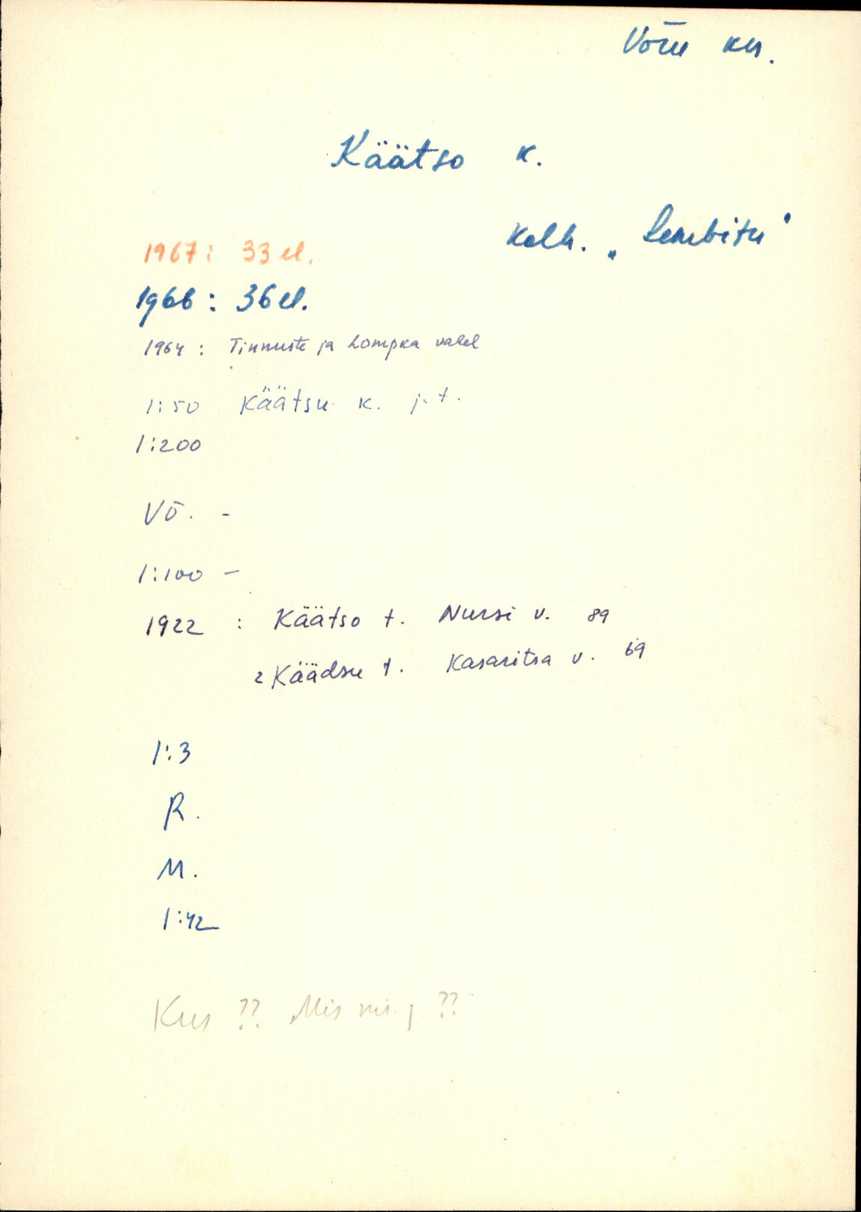 Võru kn.
Käätso k.
Kolh. „Lembitu"
1967: 33 el.
1966: 36 el.
1964: Tinnuste ja Lompka vahel
1:50 Käätsu k. j.t.
1:200
Võ. -
1:100 -
1922 : Käätso t. Nursi v. 89
2 Käädsu t. Kasaritsa v. 69
1:3
R.
M.
1:42
Kus ?? Mis ??